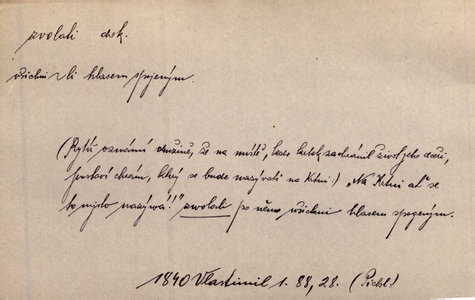 zvolati dok.
všichni zli hlasem spojeným.
(Rytíř oznámí družině, že na místě, kde krtek zachránil život jeho dceři,
postaví chrám, který se bude nazývati na Krtni:) „Na Krtni ať se
to místo nazývá!!" zvolali po něm všichni hlasem spojeným.
1840 Vlastimil 1. 88, 28. (Pichl.)